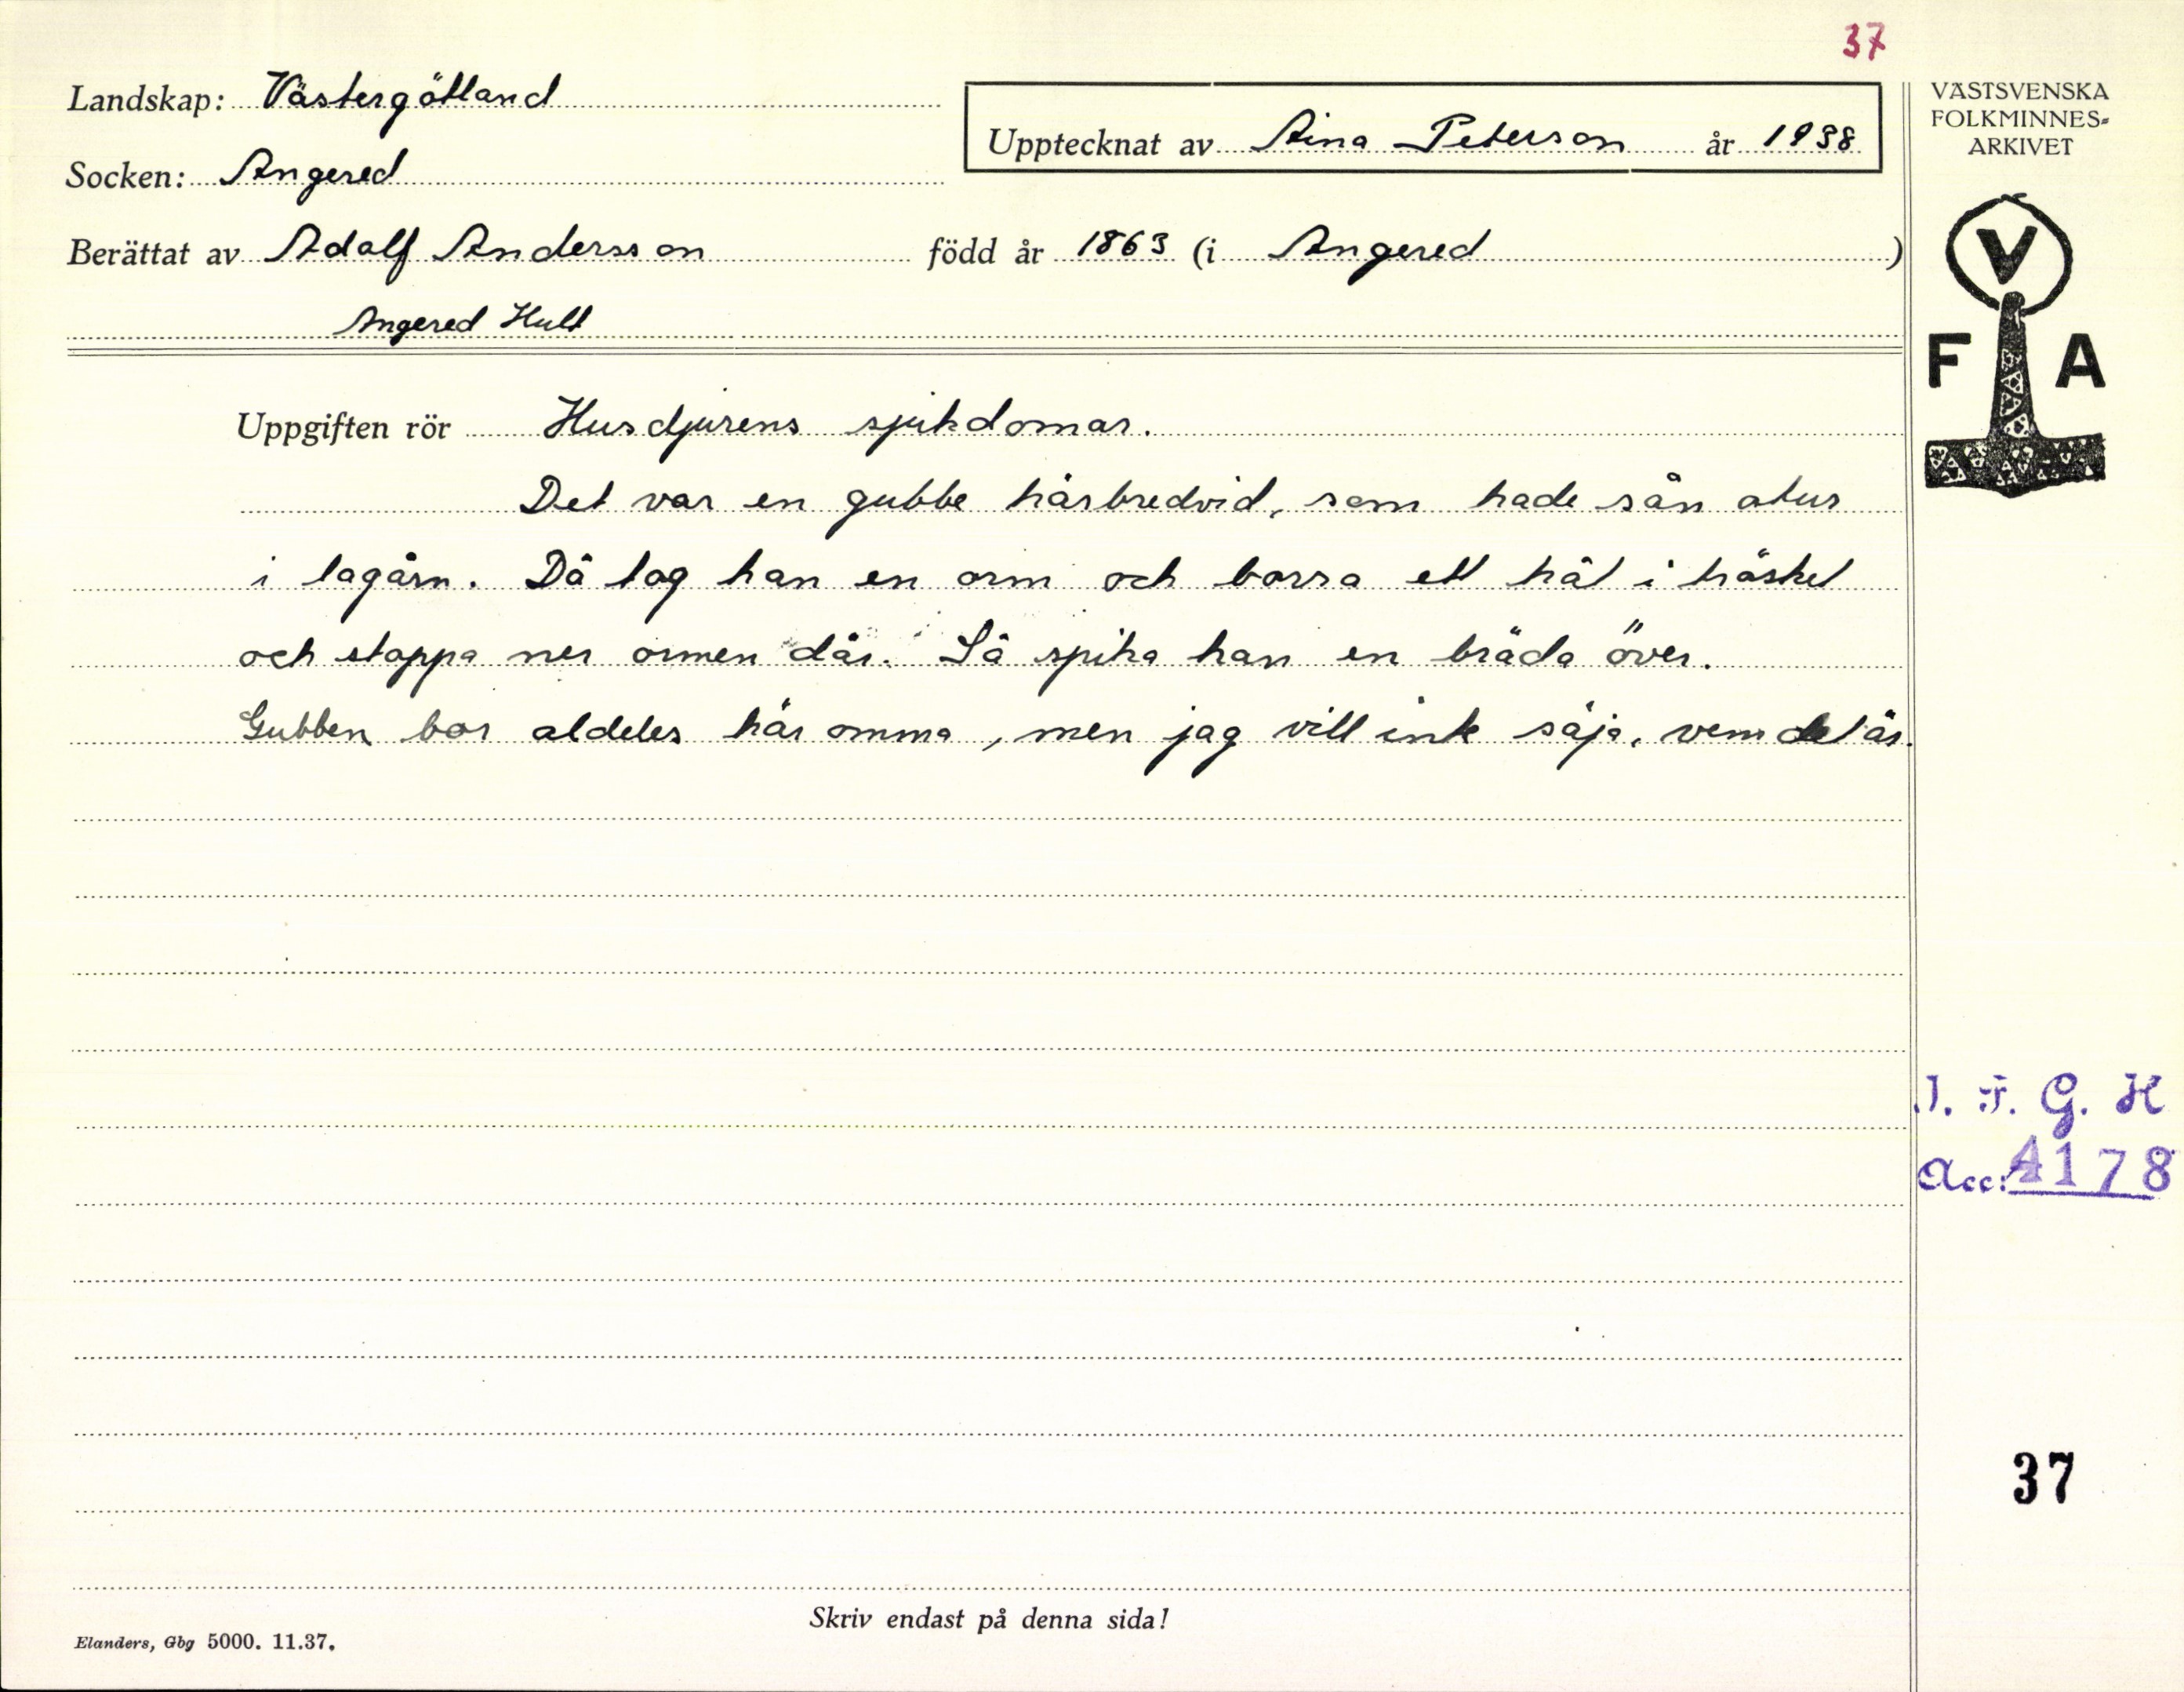 37
Landskap: Västergötland
Upptecknat av Aina Peterson år 1938
Socken: Angered
Berättat av Adolf Andersson född år 1863 (i Angered)
Angered Hult
VÄSTSVENSKA
FOLKMINNES-
ARKIVET
V
F A
Uppgiften rör Husdjurens sjukdomar.
Det var en gubbe härbredvid, som hade sån otur
i lagårn. Då tog han en orm och borra ett hål i tröskel
och stoppa ner ormen där. Så spika han en bräda över.
Gubben bor aldeles här omma, men jag vill inte säja, vem det är.
I. F. G. H
Acc: 4178
37
Skriv endast på denna sida!
Elanders, Gbg 5000. 11.37.